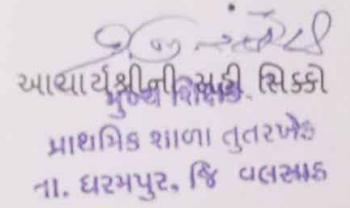 આચાર્યશ્રીની સહી સિક્કો
મુખ્ય શિક્ષક
પ્રાથમિક શાળા તુતરખેડ
તા. ધરમપુર, જિ વલસાડ